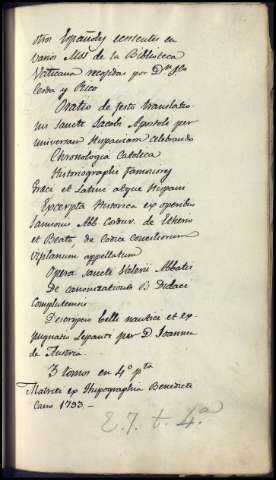 otros Españoles existentes en
varios Mss. de la Biblioteca
Vaticana recogidas por Dn. Jph
Cerda y Rico
Oratio de festo translatio-
nis Sancti Jacobi Apostoli per
universam Hispaniam celebrando
Chronologia Catolica
Historiographi famosiores
Grece et Latine atque Hispani
Excerpta Historica ex operibus
Samsonis Abb. Corduv. de Etherio
et Beato, de Codice conciliorum
vigilanum appellatum
Opera Sancti Valerii Abbatis
De canonizatione B. Didaci
Complutensis
Descriptio belli nautici et ex-
pugnatio Lepanti per D. Joannem
de Austria.
3 tomos en 4º pta
Matriti ex Thipographia Benedicti
Cano 1793.—
E. 7. t. 4.ª